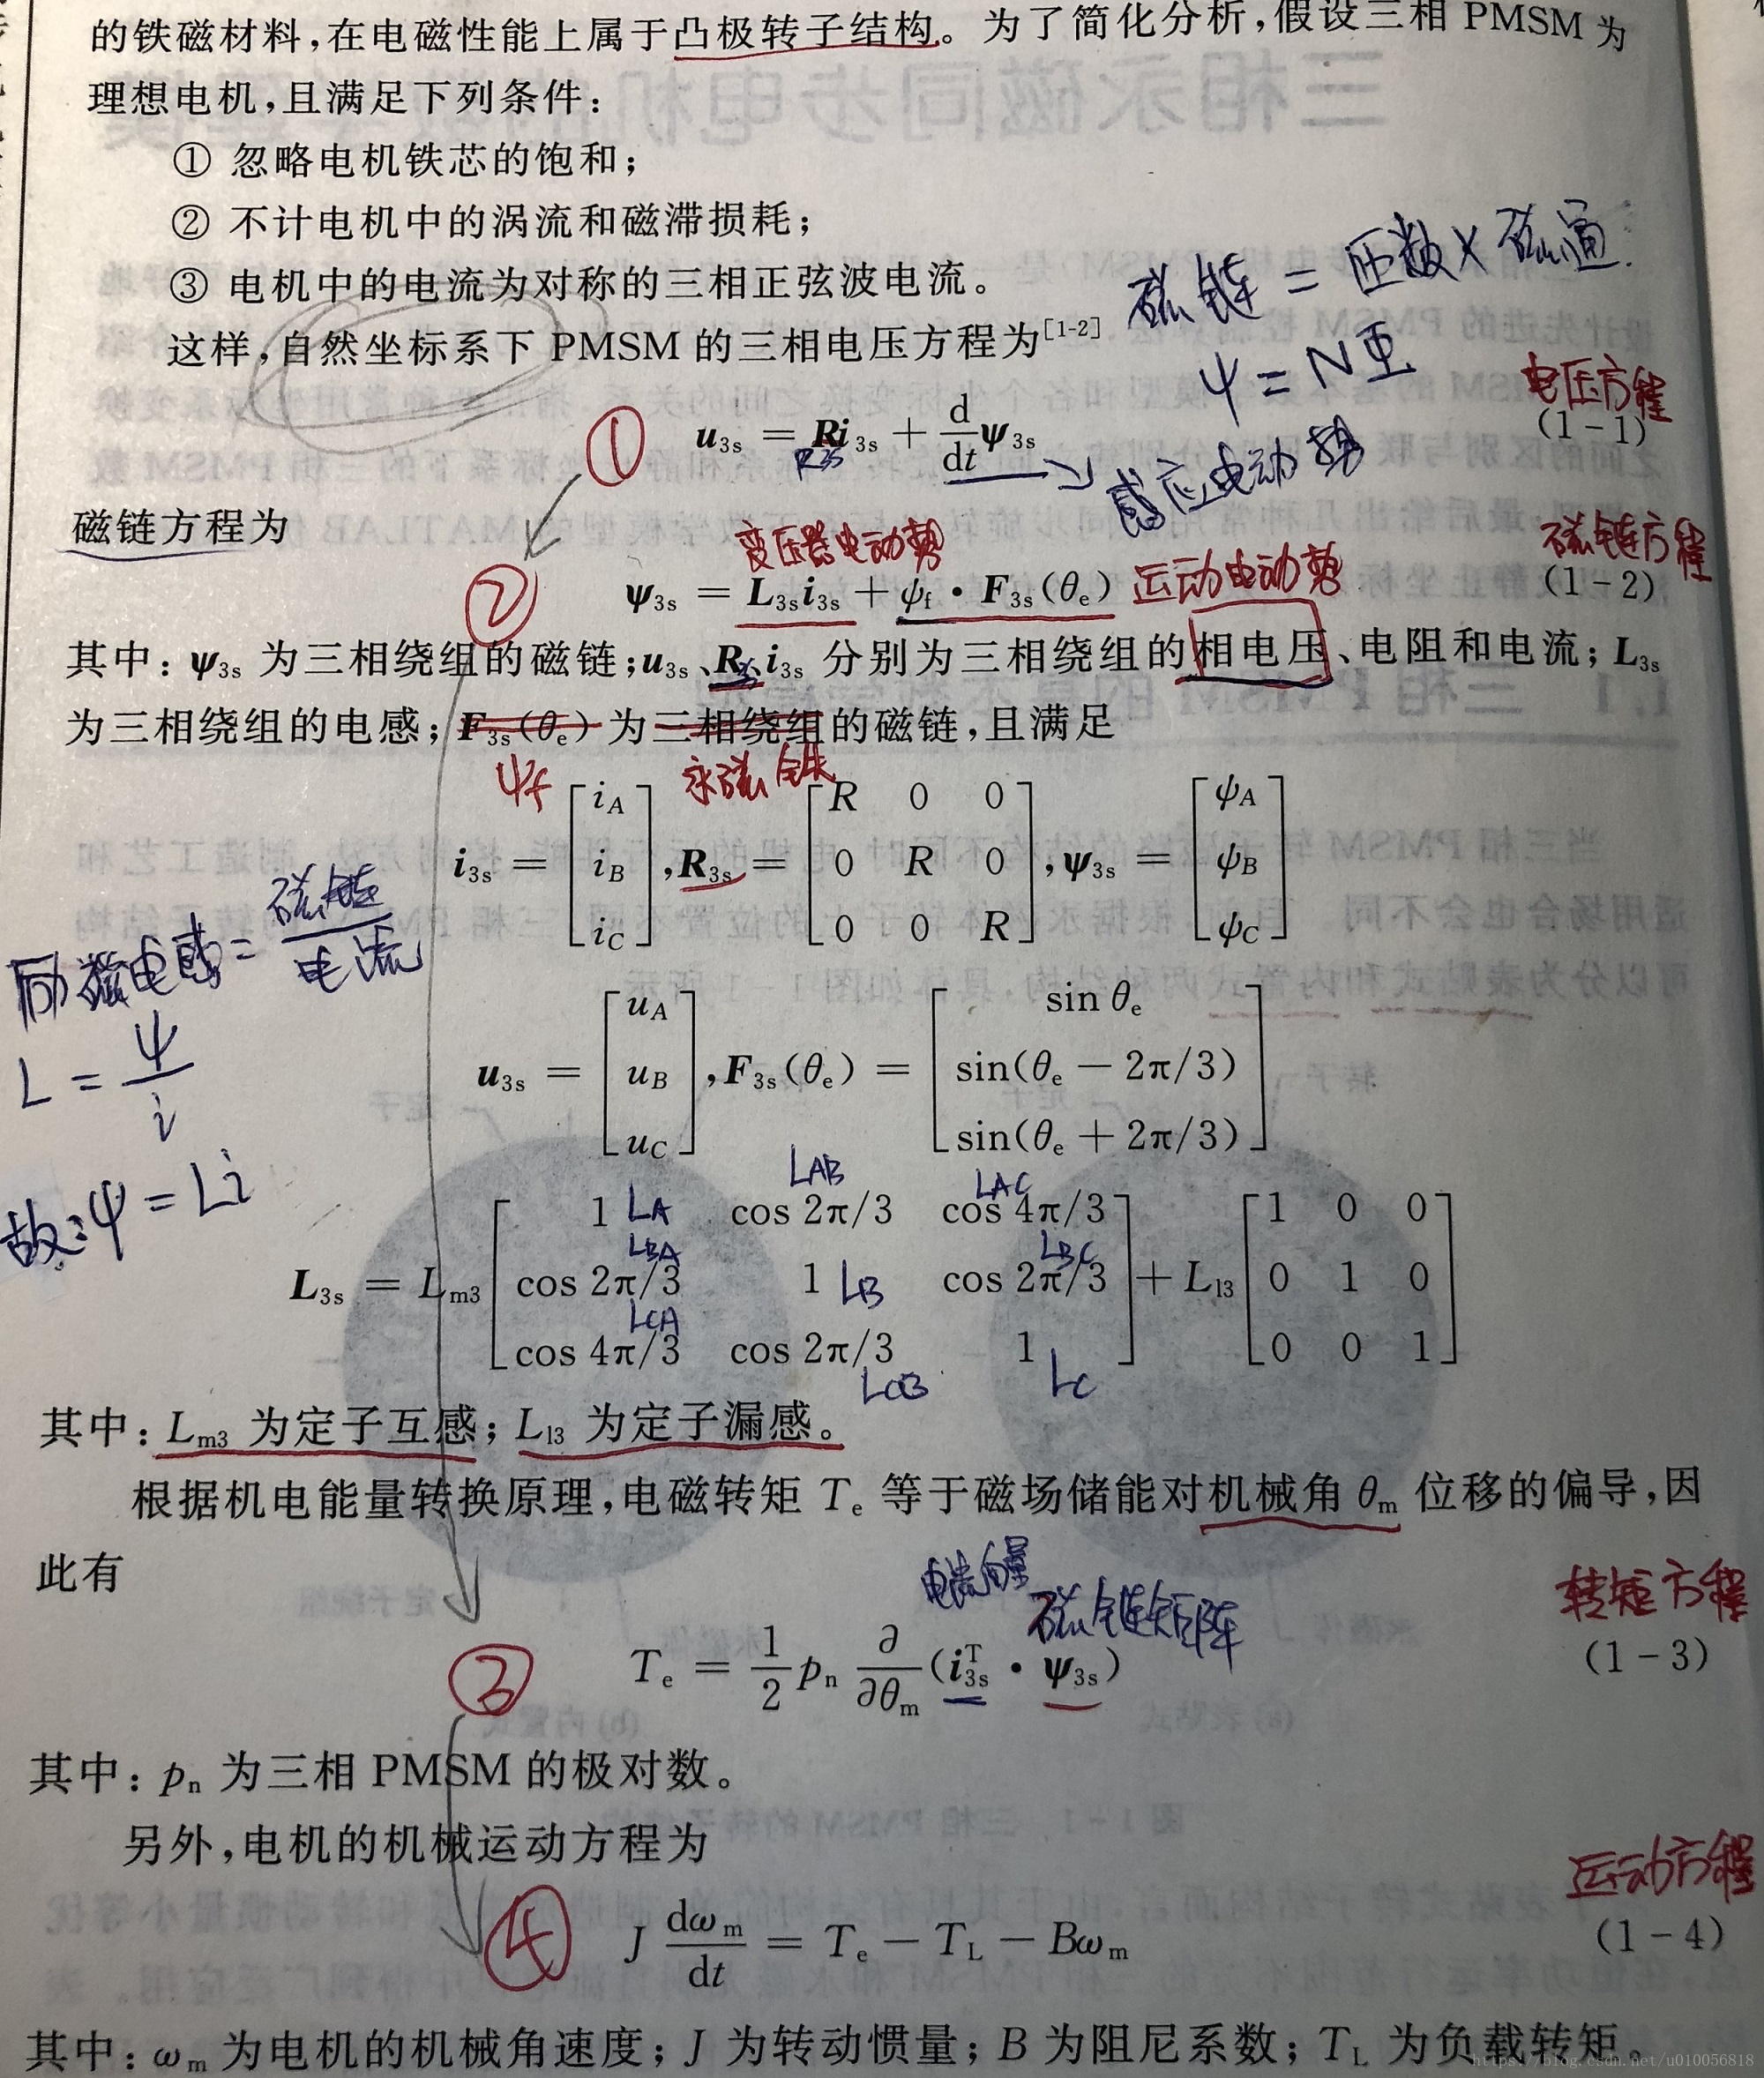 的铁磁材料,在电磁性能上属于凸极转子结构。为了简化分析,假设三相 PMSM 为
理想电机,且满足下列条件:
① 忽略电机铁芯的饱和;
② 不计电机中的涡流和磁滞损耗;
③ 电机中的电流为对称的三相正弦波电流。
磁链 = 匝数 × 磁通.
这样,自然坐标系下 PMSM 的三相电压方程为[1-2]
ψ = NΦ
电压方程
① u3s = Ri3s + d/dt ψ3s (1-1)
R3s
感应电动势
磁链方程为
变压器电动势
磁链方程
② ψ3s = L3s i3s + ψf · F3s(θe) 运动电动势 (1-2)
其中: ψ3s 为三相绕组的磁链;u3s、R3s、i3s 分别为三相绕组的相电压、电阻和电流; L3s
为三相绕组的电感; F3s(θe) 为三相绕组的磁链,且满足
ψf 永磁铁
i3s = [iA; iB; iC], R3s = [R 0 0; 0 R 0; 0 0 R], ψ3s = [ψA; ψB; ψC]
励磁电感 = 磁链/电流
u3s = [uA; uB; uC], F3s(θe) = [sin θe; sin(θe − 2π/3); sin(θe + 2π/3)]
L = ψ/i
故: ψ = Li
L3s = Lm3 [1 cos 2π/3 cos 4π/3; cos 2π/3 1 cos 2π/3; cos 4π/3 cos 2π/3 1] + Ll3 [1 0 0; 0 1 0; 0 0 1]
LA LAB LAC
LBA LB LBC
LCA LCB LC
其中: Lm3 为定子互感; Ll3 为定子漏感。
根据机电能量转换原理,电磁转矩 Te 等于磁场储能对机械角 θm 位移的偏导,因
此有
电流向量 磁链矩阵
转矩方程
③ Te = 1/2 pn ∂/∂θm (i3s^T · ψ3s) (1-3)
其中: pn 为三相 PMSM 的极对数。
另外,电机的机械运动方程为
运动方程
④ J dωm/dt = Te − TL − Bωm (1-4)
其中: ωm 为电机的机械角速度; J 为转动惯量; B 为阻尼系数; TL 为负载转矩。
https://blog.csdn.net/u010056818